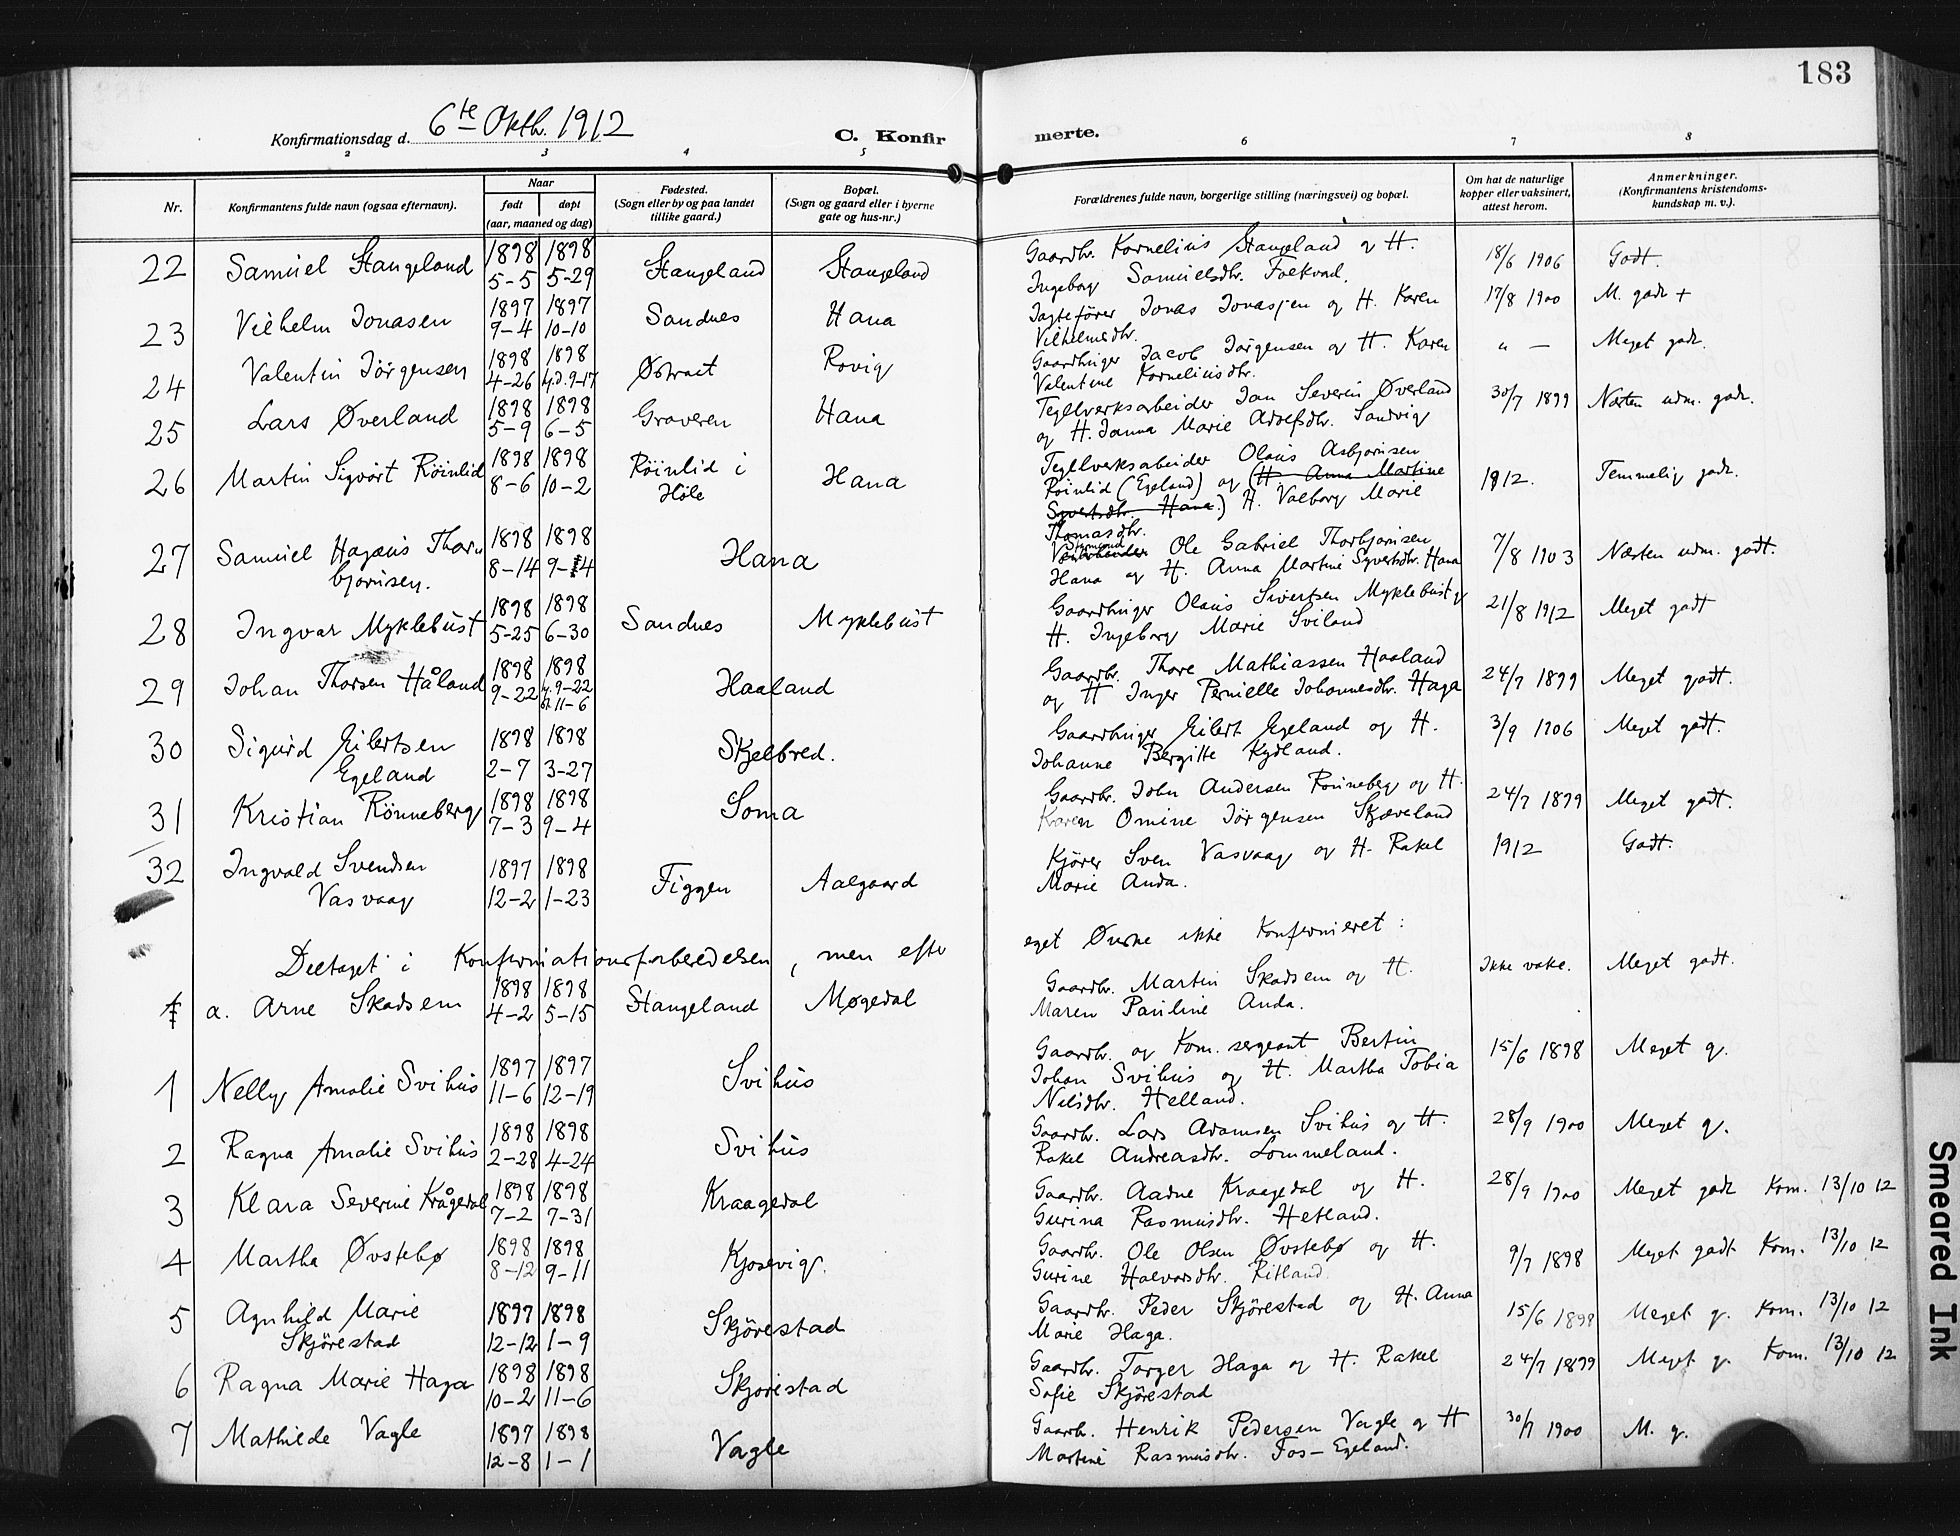 183
Konfirmationsdag d. 6te Oktb. 1912
C. Konfirmerte.
2 3 4 5 6 7 8
Nr.
Konfirmantens fulde navn (ogsaa efternavn).
Naar
født døpt
(aar, maaned og dag)
Fødested.
(Sogn eller by og paa landet
tillike gaard.)
Bopæl.
(Sogn og gaard eller i byerne
gate og hus-nr.)
Forældrenes fulde navn, borgerlige stilling (næringsvei) og bopæl.
Om hat de naturlige
kopper eller vaksinert,
attest herom.
Anmerkninger.
(Konfirmantens kristendoms-
kundskap m. v.).
22 Samuel Stangeland 1898 5-5 1898 5-29 Stangeland Stangeland Gaardbr. Kornelius Stangeland og H.
Ingeborg Samuelsdtr. Foekvad. 18/6 1906 Godt.
23 Vilhelm Jonasen 1897 9-4 1897 10-10 Sandnes Hana Jagtefører Jonas Jonassen og H. Karen
Vilhelmsdtr. 17/8 1900 M. godt +
24 Valentin Jörgensen 1898 4-26 1898 hj.d. 9-17 Østraat Rovig Gaardbruger Jacob Jørgensen og H. Karen
Valentine Korneliusdtr. " — Meget godt.
25 Lars Øverland 1898 5-9 1898 6-5 Graveren Hana Teglverksarbeider Jan Severin Øverland
og H. Janna Marie Adolfsdtr. Sandvig 30/7 1899 Næsten udm. godt.
26 Martin Sigvart Röinlid 1898 8-6 1898 10-2 Röinlid i
Høle Hana Teglverksarbeider Olaus Asbjørnsen
Röinlid (Egeland) og (H. Anna Martine
Syvertsdtr. Hana.) H. Valborg Marie
Thomasdtr. 1912. Temmelig godt.
27 Samuel Hagæus Thor-
bjørnsen. 1898 8-14 1898 9-4 Hana Ole Gabriel Thorbjørnsen
Hana og H. Anna Martine Syvertsdtr. Hana 7/8 1903 Næsten udm. godt.
28 Ingvar Myklebust 1898 5-25 1898 6-30 Sandnes Myklebust Gaardbruger Olaus Sivertsen Myklebust og
H. Ingeborg Marie Sviland 21/8 1912 Meget godt
29 Johan Thorsen Håland 1898 9-22 1898 hj. 9-22
k. 11-6 Haaland Gaardbr. Thore Mathiassen Haaland
og H Inger Pernielle Johannesdtr. Haga 24/7 1899 Meget godt.
30 Sigurd Eilertsen
Egeland 1898 2-7 1898 3-27 Skjelbred. Gaardbruger Eilert Egeland og H.
Johanne Bergitte Kydland. 3/9 1906 Meget godt.
31 Kristian Rönneberg 1898 7-3 1898 9-4 Soma Gaardbr. John Andersen Rönneberg og H.
Karen Omine Jörgensen Skjæveland 24/7 1899 Meget godt.
32 Ingvald Svendsen
Vasvaag 1897 12-2 1898 1-23 Figgen Aalgaard Kjører Sven Vasvaag og H. Rakel
Marie Anda. 1912 Godt.
Deltaget i Konfirmationsforberedelsen, men efter eget Ønske ikke Konfirmeret:
a. Arne Skadsem 1898 4-2 1898 5-15 Stangeland Møgedal Gaardbr. Martin Skadsem og H.
Maren Pauline Anda. Ikke vakc. Meget godt.
1 Nelly Amalie Svihus 1897 11-6 1897 12-19 Svihus Gaardbr. og Kom. sergeant Bertin
Johan Svihus og H. Martha Tobia
Nilsdtr. Helland. 15/6 1898 Meget g.
2 Ragna Amalie Svihus 1898 2-28 1898 4-24 Svihus Gaardbr. Lars Adamsen Svihus og H.
Rakel Andreasdtr. Lommeland. 28/9 1900 Meget g.
3 Klara Severine Krågedal 1898 7-2 1898 7-31 Kraagedal Gaardbr. Aadne Kraagedal og H.
Gurina Rasmusdtr. Hetland. 28/9 1900 Meget godt Kom. 13/10 12
4 Martha Øvstebø 1898 8-12 1898 9-11 Kjosevig. Gaardbr. Ole Olsen Øvstebø og H.
Gurine Halvorsdtr. Ritland. 9/7 1898 Meget godt Kom. 13/10 12
5 Agnhild Marie
Skjörestad 1897 12-12 1898 1-9 Skjörestad Gaardbr. Peder Skjörestad og H. Anna
Marie Haga. 15/6 1898 Meget g. Kom. 13/10 12
6 Ragna Marie Haga 1898 10-2 1898 11-6 Skjörestad Gaardbr. Torger Haga og H. Rakel
Sofie Skjörestad 24/7 1899 Meget g. Kom. 13/10 12
7 Mathilde Vagle 1897 12-8 1898 1-1 Vagle Gaardb. Henrik Pedersen Vagle og H
Martine Rasmusdtr. Fos-Egeland. 30/7 1900 M. g.
Smeared Ink